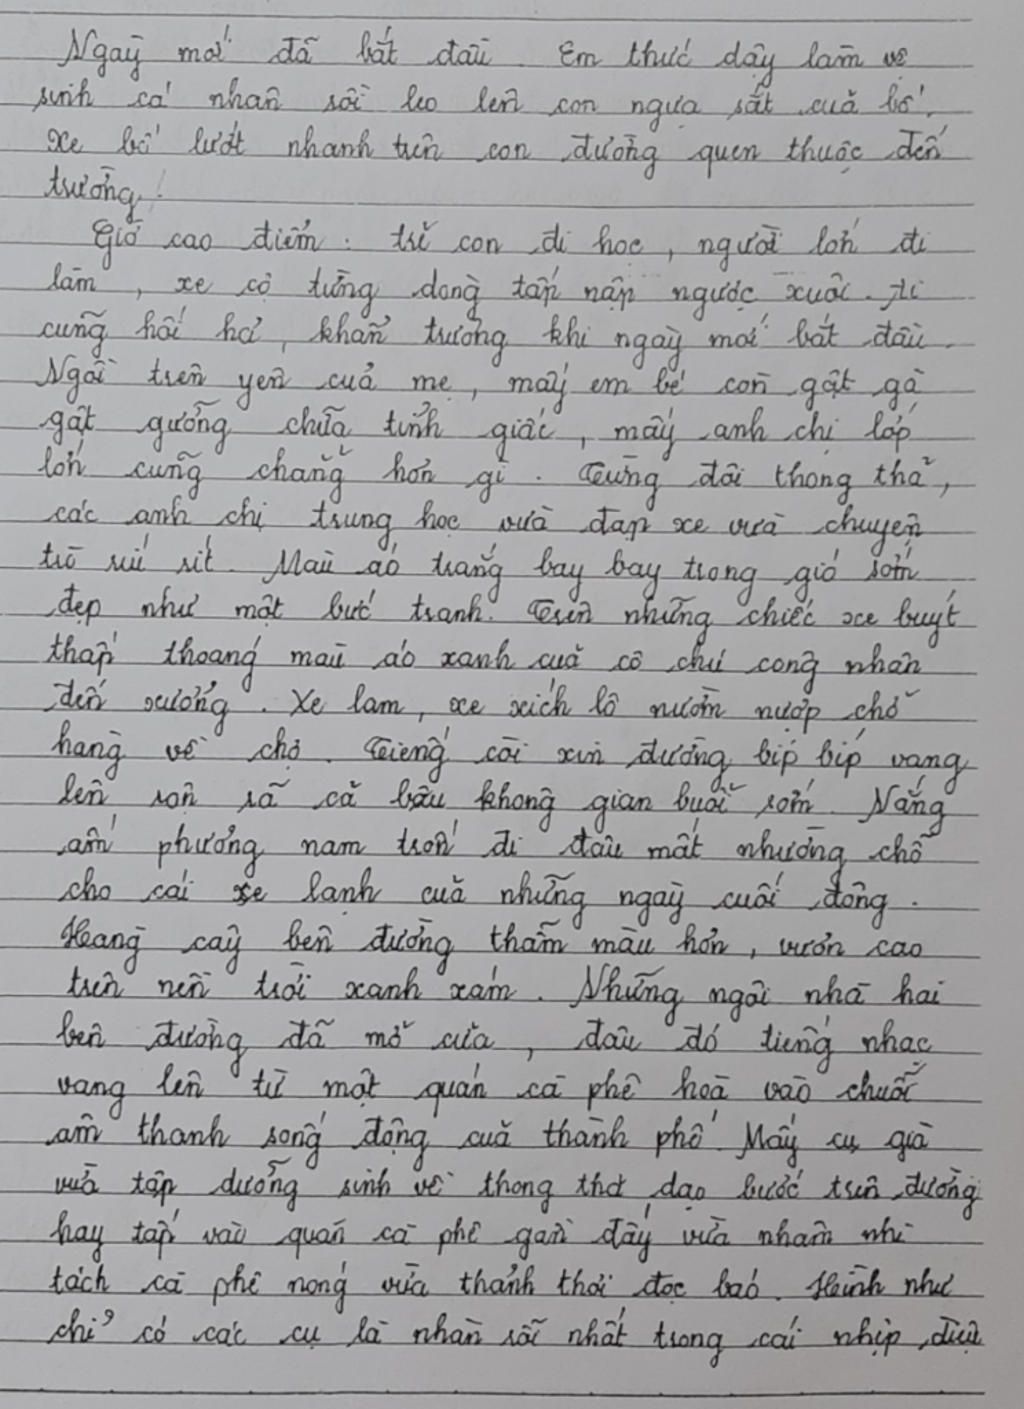 Ngày mới đã bắt đầu. Em thức dậy làm vệ
sinh cá nhân rồi leo lên con ngựa sắt của bố.
Xe bố lướt nhanh trên con đường quen thuộc đến
trường!
Giờ cao điểm. trẻ con đi học, người lớn đi
làm, xe cộ từng dòng tấp nập ngược xuôi. Ai
cũng hối hả, khẩn trương khi ngày mới bắt đầu.
Ngồi trên yên của mẹ, mấy em bé còn gật gà
gật gưỡng chữa tỉnh giấc, mấy anh chị lớp
lớn cũng chẳng hơn gì. Từng đôi thong thả,
các anh chị trung học vừa đạp xe vừa chuyện
trò ríu rít. Màu áo trắng bay bay trong gió sớm
đẹp như một bức tranh. Trên những chiếc xe buýt
thấp thoáng màu áo xanh của cô chú công nhân
đến xưởng. Xe lam, xe xích lô nườm nượp chở
hàng về chợ. Tiếng còi xin đường bíp bíp vang
lên rộn rã cả bầu không gian buổi sớm. Nắng
ấm phương nam trốn đi đâu mất nhường chỗ
cho cái se lạnh của những ngày cuối đông.
Hàng cây bên đường thẫm màu hơn, vươn cao
trên nền trời xanh xám. Những ngôi nhà hai
bên đường đã mở cửa, đâu đó tiếng nhạc
vang lên từ một quán cà phê hoà vào chuỗi
âm thanh sống động của thành phố. Mấy cụ già
vừa tập dưỡng sinh về thong thả dạo bước trên đường
hay tấp vào quán cà phê gần đấy vừa nhâm nhi
tách cà phê nóng vừa thảnh thơi đọc báo. Hình như
chỉ có các cụ là nhàn rỗi nhất trong cái nhịp điệu